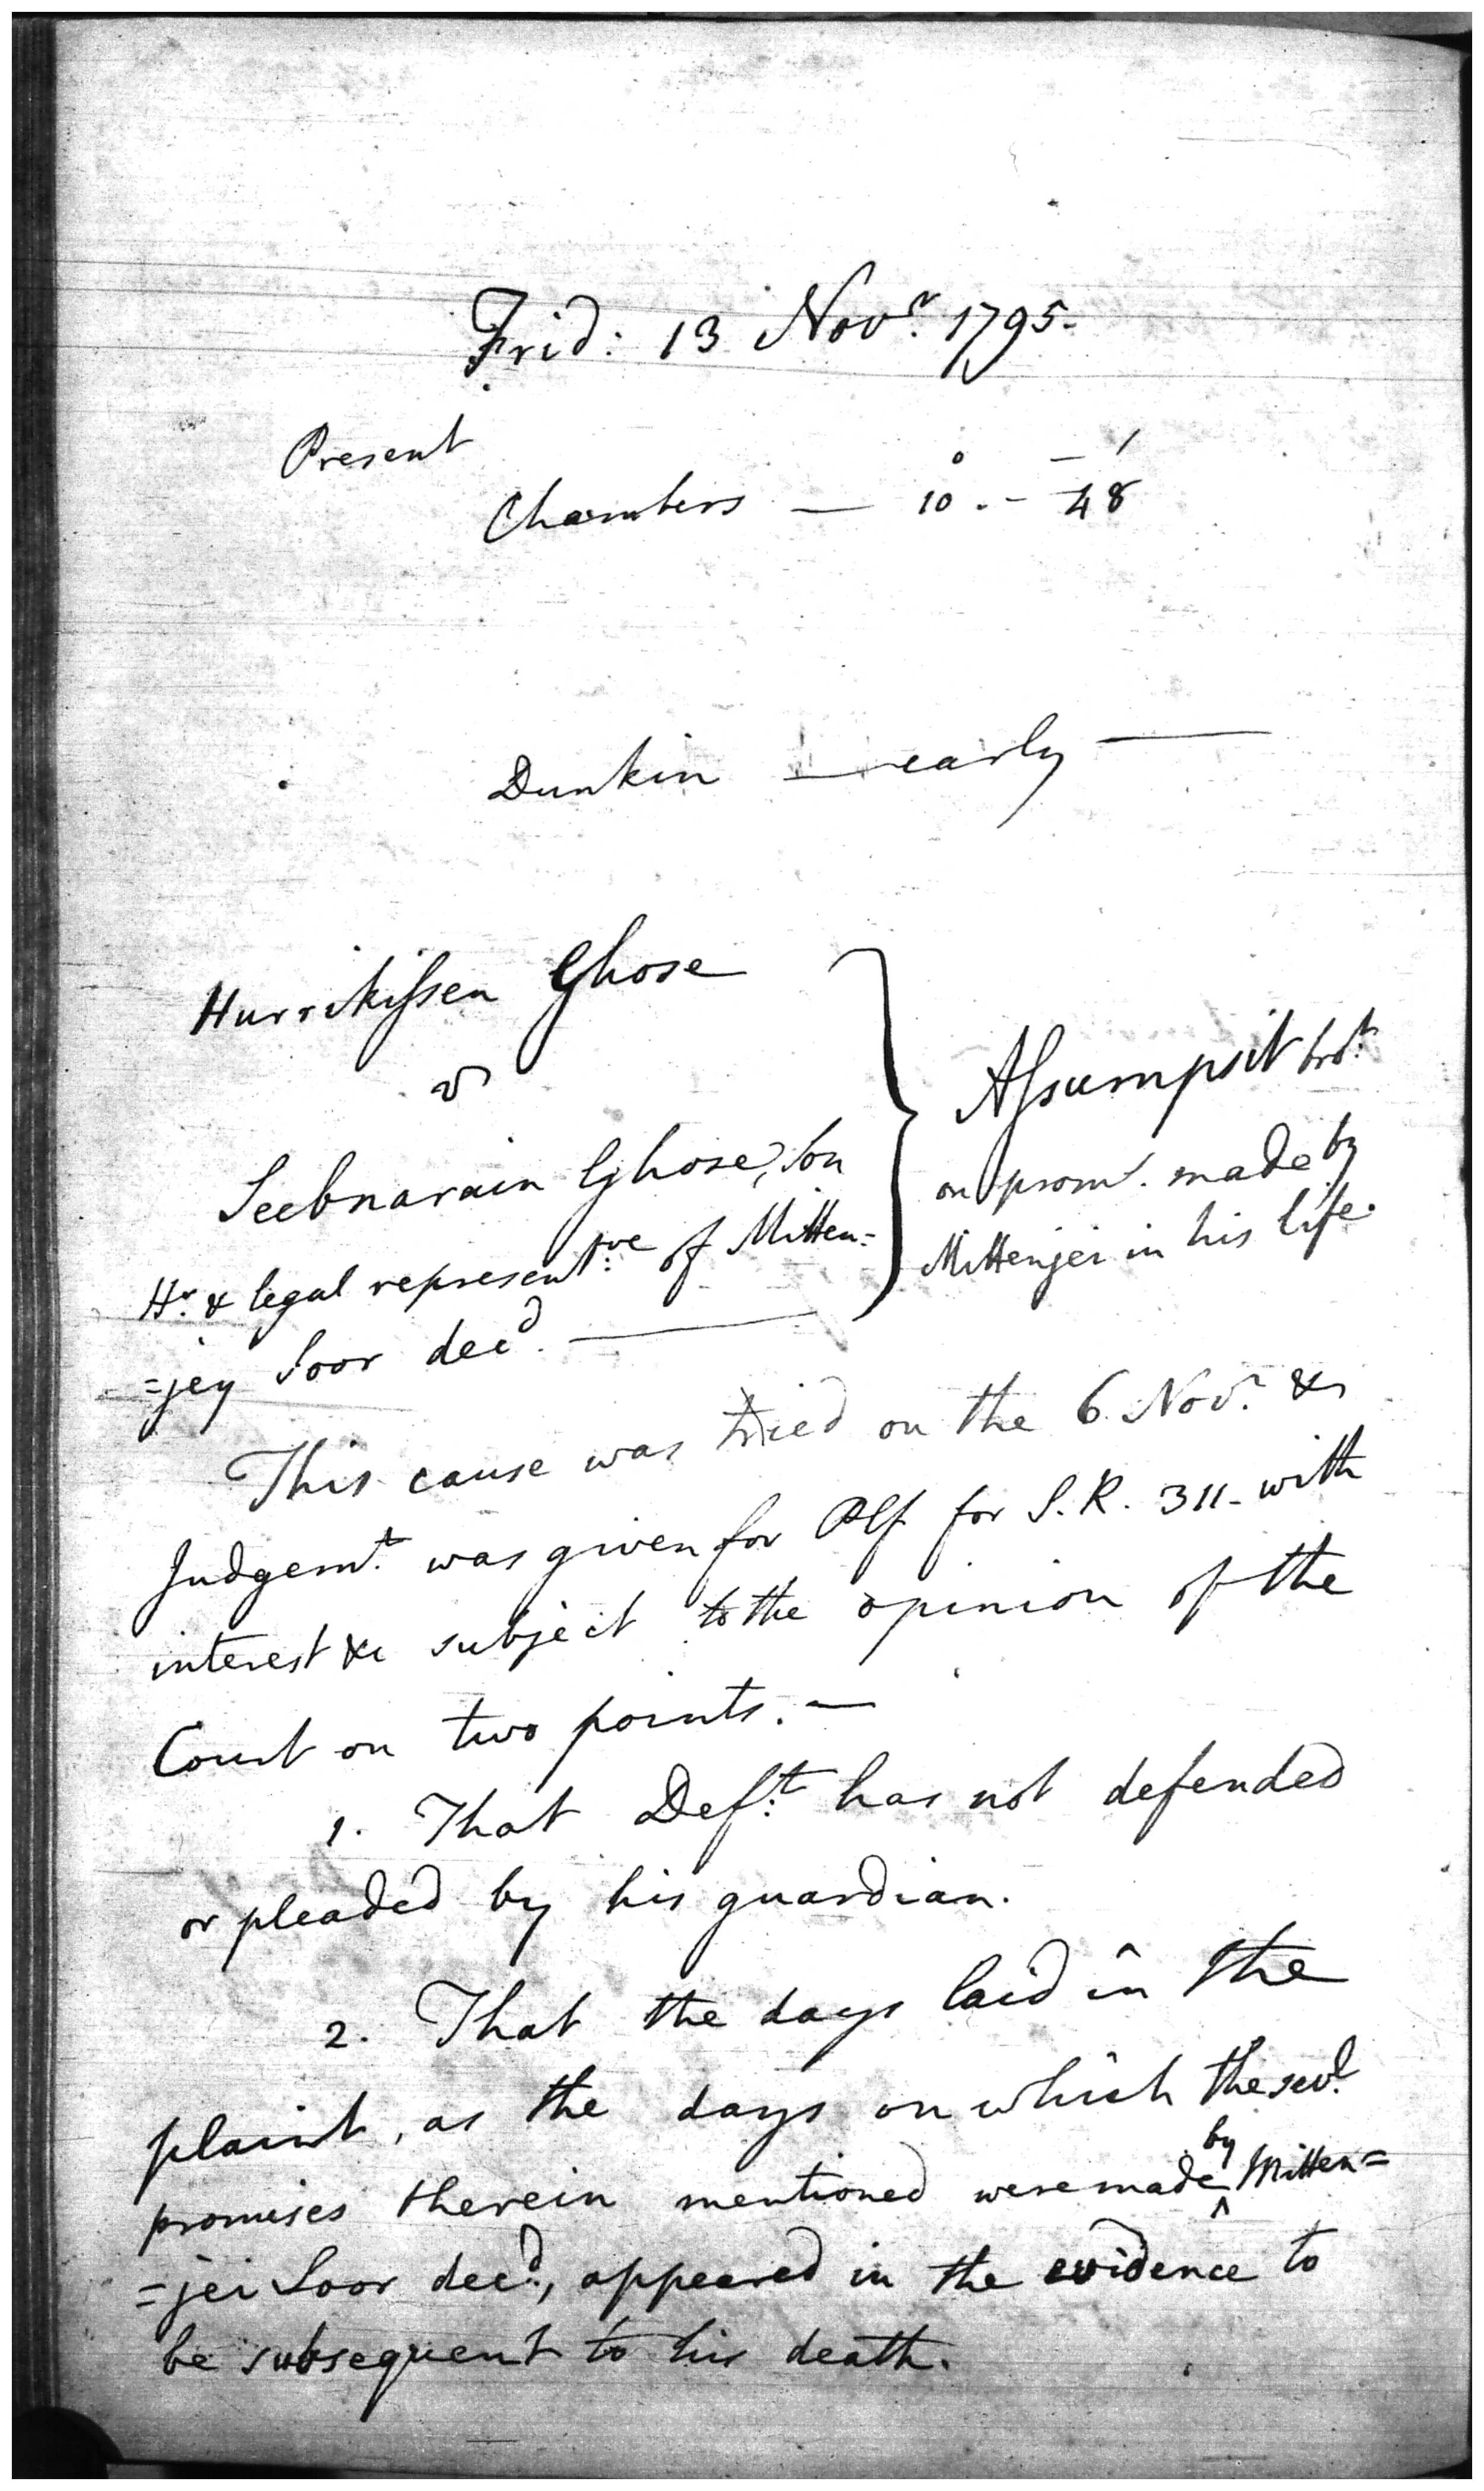 Frid: 13 Novr. 1795.
Present
Chambers — 10° . - 48'
Dunkin — early —
Hurrikissen Ghose
v
Seebnarain Ghose, Son
Hr. & legal representve. of Mitten=
=jey Soor decd. —
Assumpsit brot.
on prom. made by
Mittenjei in his life.
This cause was tried on the 6. Novr. &
Judgemt. was given for Plf for S.R. 311- with
interest &c subject to the opinion of the
Court on two points. —
1. That Deft. has not defended
or pleaded by his guardian.
2. That the days laid in the
plaint, as the days on which the sevl.
promises therein mentioned were made by Mitten=
=jei Soor decd., appeared in the evidence to
be subsequent to his death.